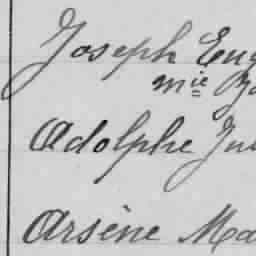 Joseph Eug
mie
Adolphe Ju
Arsène Ma